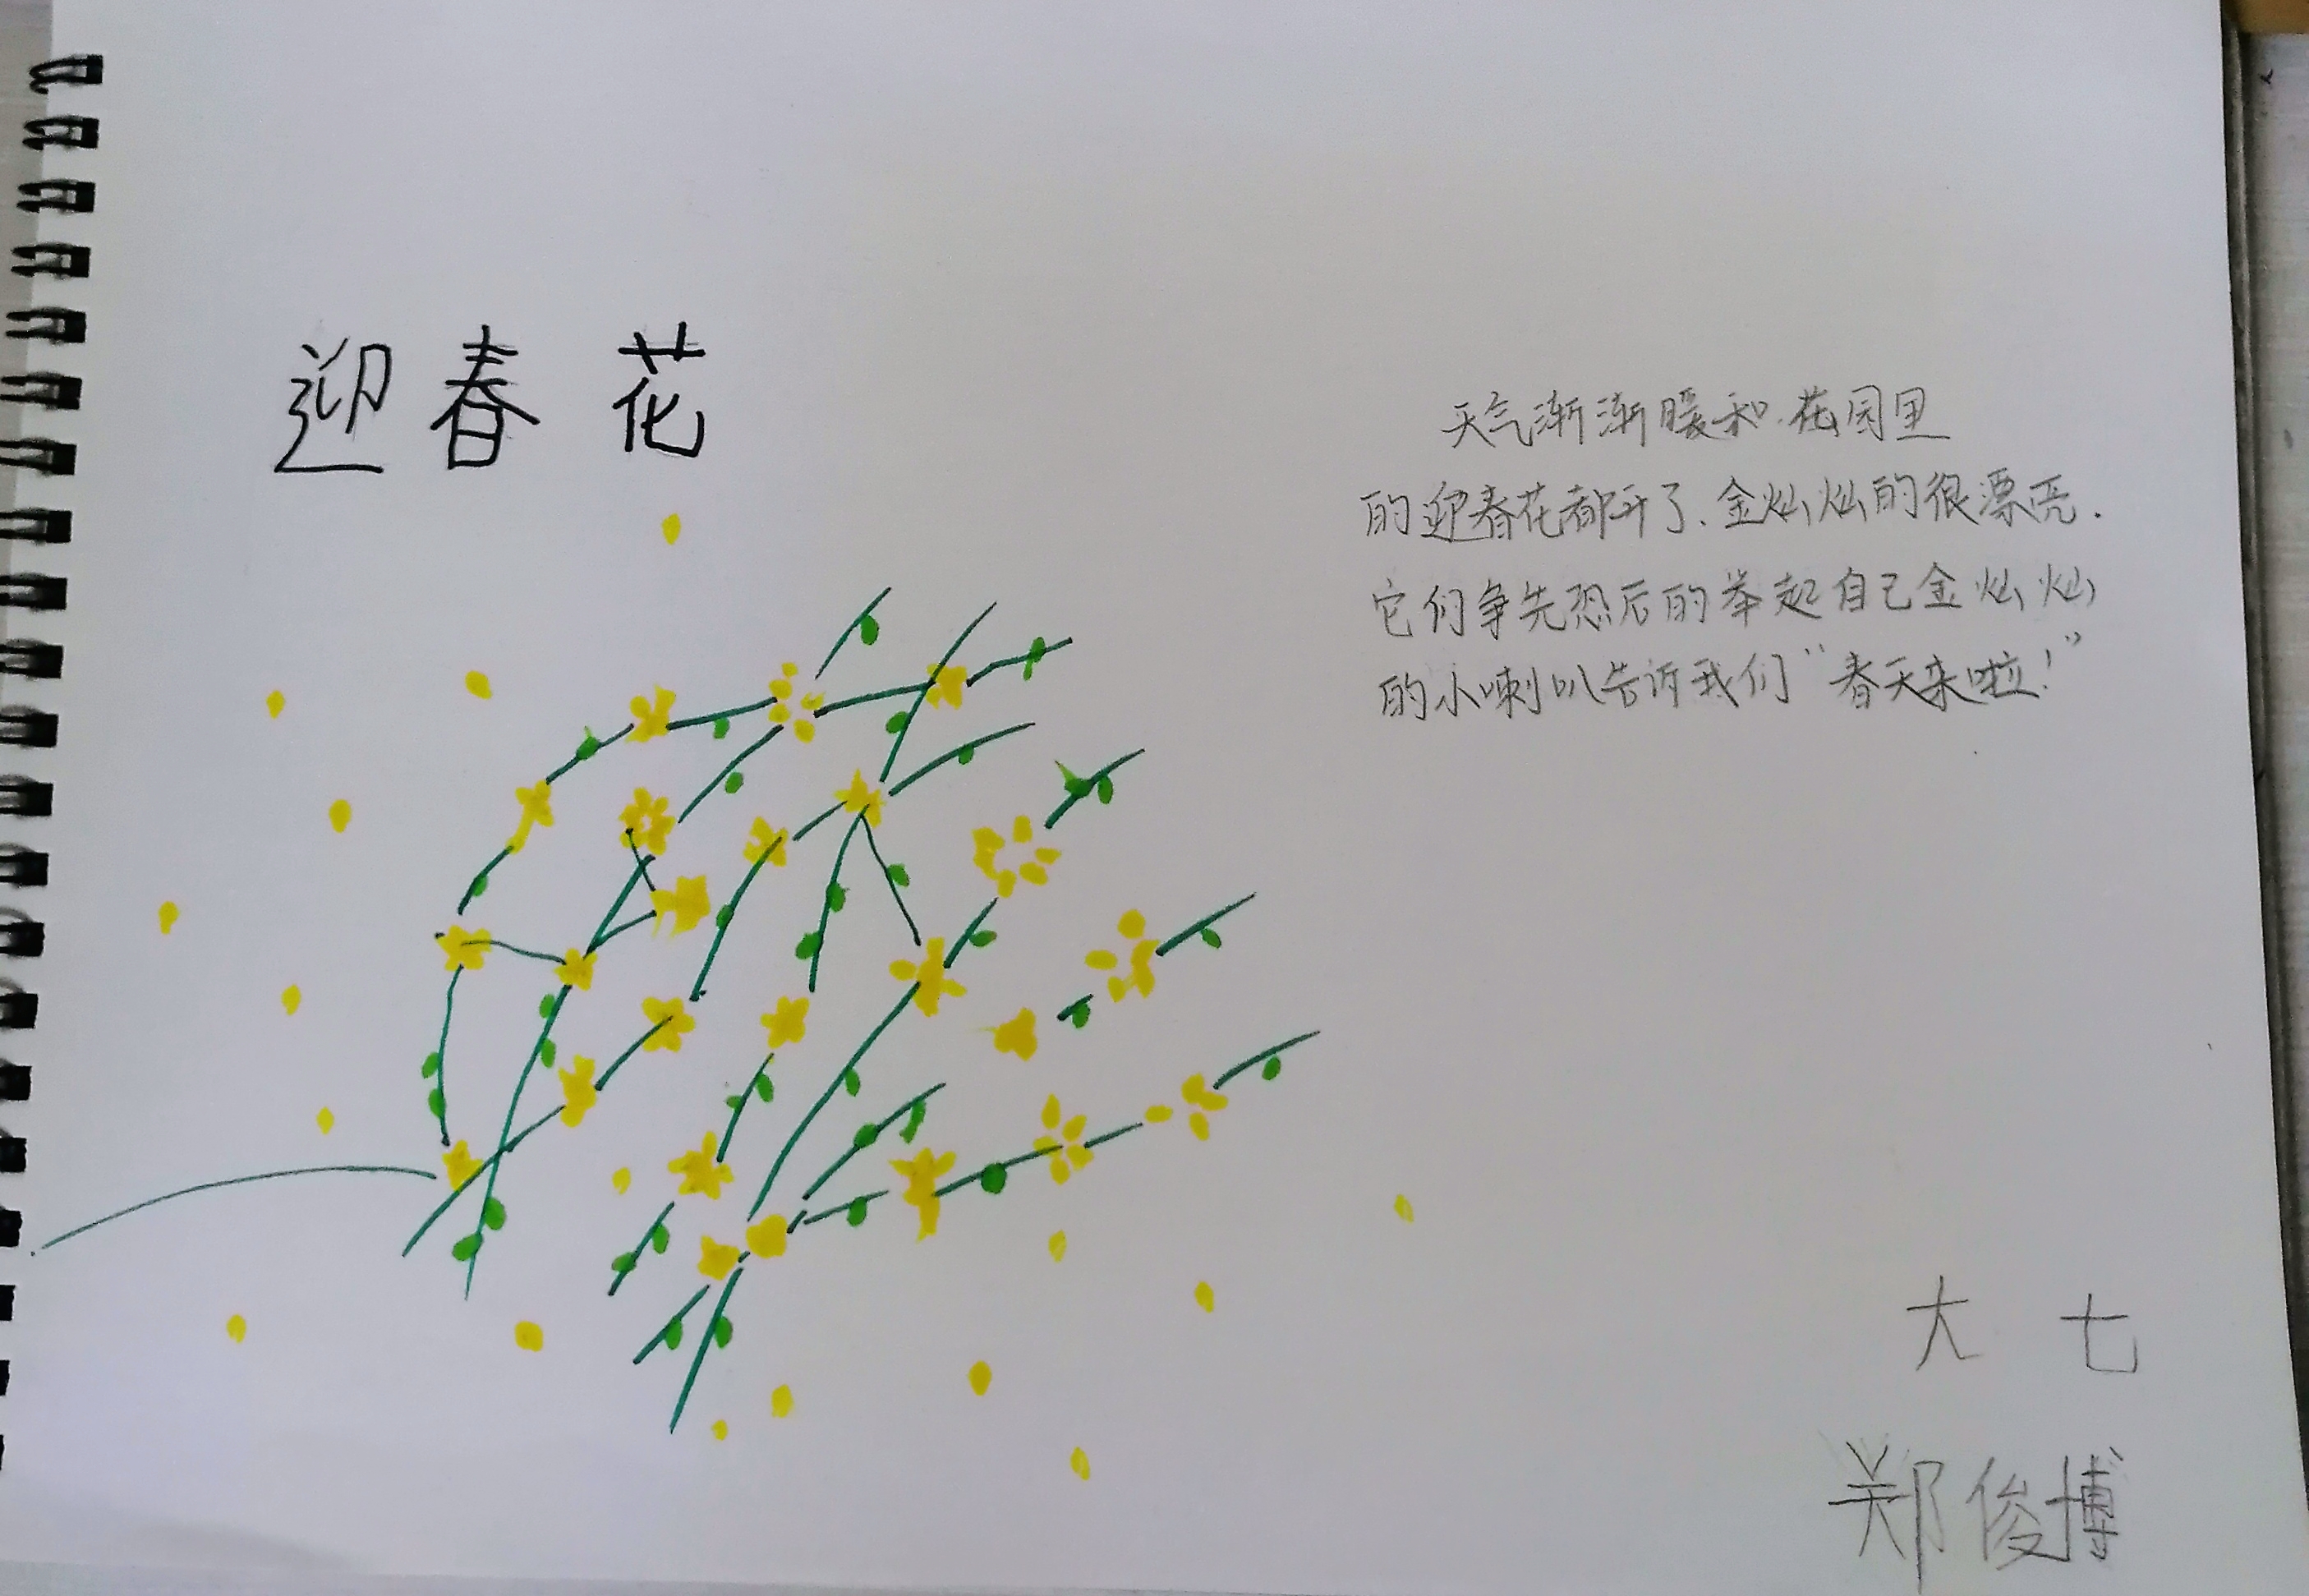 迎春花
天气渐渐暖和.花园里
的迎春花都开了.金灿灿的很漂亮.
它们争先恐后的举起自己金灿灿
的小喇叭告诉我们“春天来啦!”
大七
郑俊博